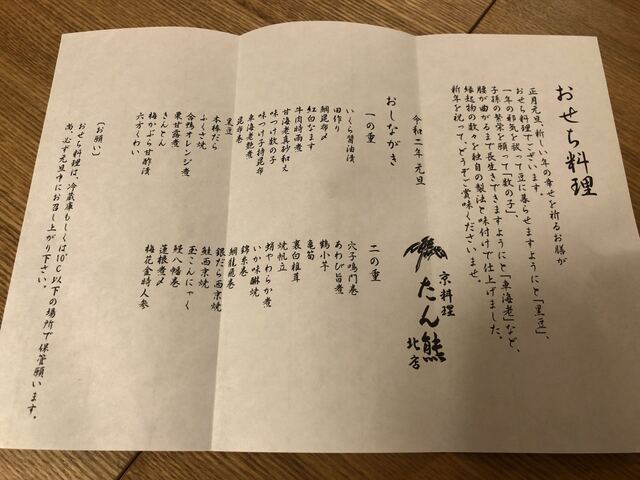 おせち料理
正月元旦、新しい年の幸せを祈るお膳が
おせち料理でございます。
一年の邪気を祓って豆に暮らせますようにと「黒豆」、
子孫の繁栄を願って「数の子」、
腰が曲がるまで長生きできますようにと「車海老」など、
縁起物の数々を独自の製法と味付けで仕上げました。
新年を祝って、どうぞご賞味くださいませ。
京料理
たん熊
北店
令和二年 元旦
おしながき
一の重
いくら醤油漬
田作り
鯛昆布〆
紅白なます
牛肉時雨煮
甘海老真砂和え
味つけ数の子
味つけ子持昆布
車海老艶煮
昆布巻
黒豆
本棒だら
ふくさ焼
合鴨オレンジ煮
栗甘露煮
きんとん
梅かぶら甘酢漬
六方くわい
二の重
穴子鳴門巻
あわび旨煮
鶴小芋
亀筍
裏白椎茸
焼帆立
蛸やわらか煮
いか味醂焼
錦糸巻
鯛龍飛巻
銀だら西京焼
鮭西京焼
玉こんにゃく
鰻八幡巻
蓮根煮〆
梅花金時人参
〔お願い〕
おせち料理は、冷蔵庫もしくは10℃以下の場所で保管願います。
尚、必ず元旦中にお召し上がり下さい。